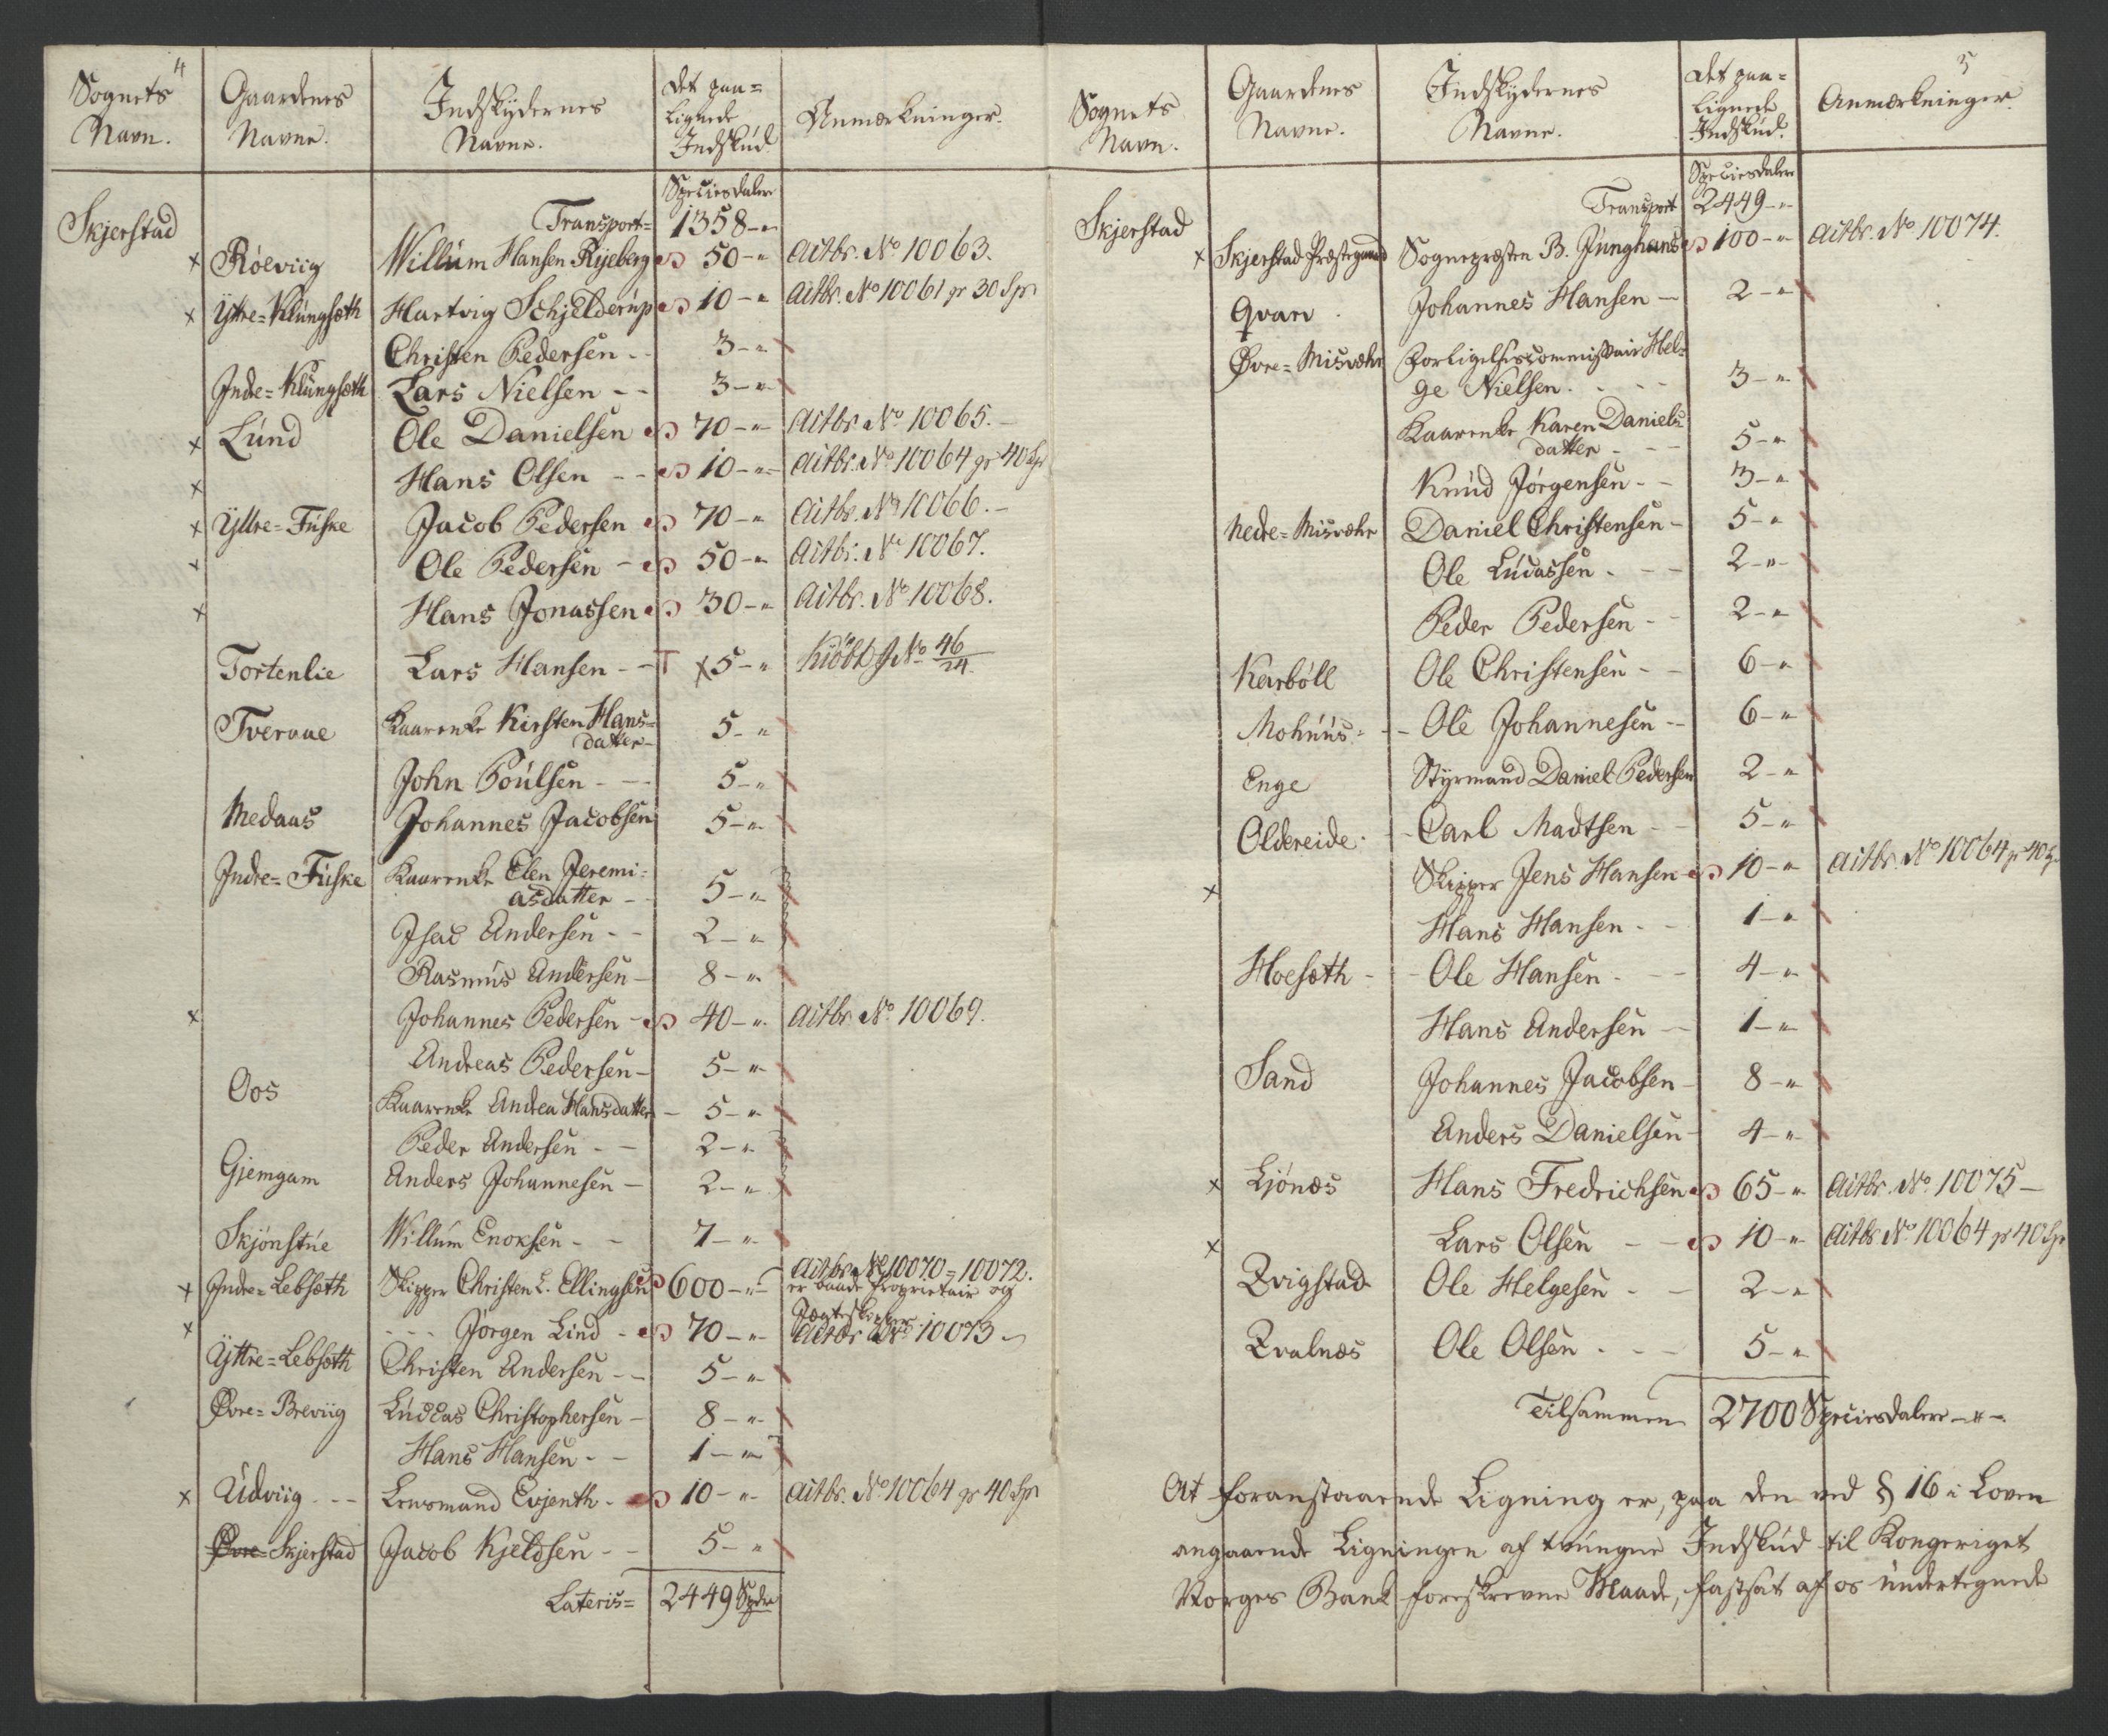 4
Sognets Navn. | Gaardenes Navne. | Indskydernes Navne. | Det paa=lignede Indskud. | Anmærkninger.
Speciesdaler
Skjerstad | Transport= 1358-"
x Röeviig | Willum Hansen Rijeberg | 50-" | Actbr. No 10063.
x Yttre=Klungsæth | Hartvig Schjelderup | 10-" | Actbr. No 10061 gr 30 Spr
Christen Pedersen - - | 3-"
Indre=Klungsæth | Lars Nielsen - - | 3-"
x Lund | Ole Danielsen | 70-" | Actbr. No 10065.-
x Hans Olsen - - | 10-" | Actbr. No 10064 gr 40 Spr
x Yttre=Fuske | Jacob Pedersen | 70-" | Actbr. No 10066.-
x Ole Pedersen - | 50-" | Actbr. No 10067.
x Hans Jonassen | 30-" | Actbr. No 10068.
Tortenlie | Lars Hansen - - T | x 5-" | Kiöbt J No 46/24
Tveraae | Kaarenke Kirsten Hans=
datter- | 5-"
John Poulsen - - - | 5-"
Medaas | Johannes Jacobsen | 5-"
Indre=Fuske | Kaarenke Elen Jeremi=
asdatter - - | 5-"
Isac Andersen - - | 2-"
Rasmus Andersen - | 8-"
x Johannes Pedersen - | 40-" | Actbr. No 10069.
Andreas Pedersen - | 5-"
Oos | Kaarenke Andrea Hansdatter - | 5-"
Peder Andersen - - | 2-"
Gjemgam | Anders Johannesen - | 2-"
Skjönstue | Willum Enoksen - - | 7-"
x Indre=Lebsæth | Skipper Christen L. Ellingsen | 600-" | Actbr. No 10070=10072.
er baade Proprietair og
Jægteskipper
x - - - Jørgen Lind - | 70-" | Actbr No 10073-
Yttre=Lebsæth | Christen Andersen - - | 5-"
Øvre=Breviig | Luccas Christophersen - | 8-"
Hans Hansen - - | 1-"
x Udviig - - - | Lensmand Evjenth - | 10-" | Actbr. No 10064 gr 40 Spr
Øvre= Skjerstad | Jacob Kjeldsen - - | 5-"
Lateris= | 2449 Spdr
5
Sognets Navn. | Gaardenes Navne. | Indskydernes Navne. | Det paa=lignede Indskud. | Anmærkninger.
Speciesdaler
Skjerstad | Transport 2449-"
x Skjerstad Præstegaard | Sognepræsten B. Junghans | 100-" | Actbr. No 10074.
Qvarv | Johannes Hansen - | 2-"
Øvre=Misvær | Forligelsescommissair Hel=
ge Nielsen - - - | 3-"
Kaarenke Karen Daniels
datter - - - | 5-"
Knud Jørgensen - - | 3-"
Nedre=Misvær | Daniel Christensen - | 5-"
Ole Lucassen - - - | 2-"
Peder Pedersen - - | 2-"
Karböll | Ole Christensen - - | 6-"
Mohuus - | Ole Johannesen - - | 6-"
Enge | Styrmand Daniel Pedersen | 2-"
Oldereide - | Carl Madtsen - - | 5-"
x Skipper Jens Hansen | 10-" | Actbr. No 10064 gr 40 Sp
Hans Hansen - - | 1-"
Hoesæth - | Ole Hansen - - - | 4-"
Hans Andersen - - | 1-"
Sand | Johannes Jacobsen - | 8-"
Anders Danielsen - | 4-"
x Ljönæs | Hans Fredrichsen | 65-" | Actbr. No 10075-
x Lars Olsen - - | 10-" | Actbr No 10064 gr 40 Spr
Qvigstad | Ole Helgesen - - | 2-"
Kvalnæs | Ole Olsen - - - | 5-"
Tilsammen | 2700 Speciesdaler-"-
At foranstaaende Ligning er, paa den ved § 16 i Loven
angaaende Ligningen af tvungne Indskud til Kongeriget
Norges Bank foreskrevne Maade, fastsat af os undertegnede